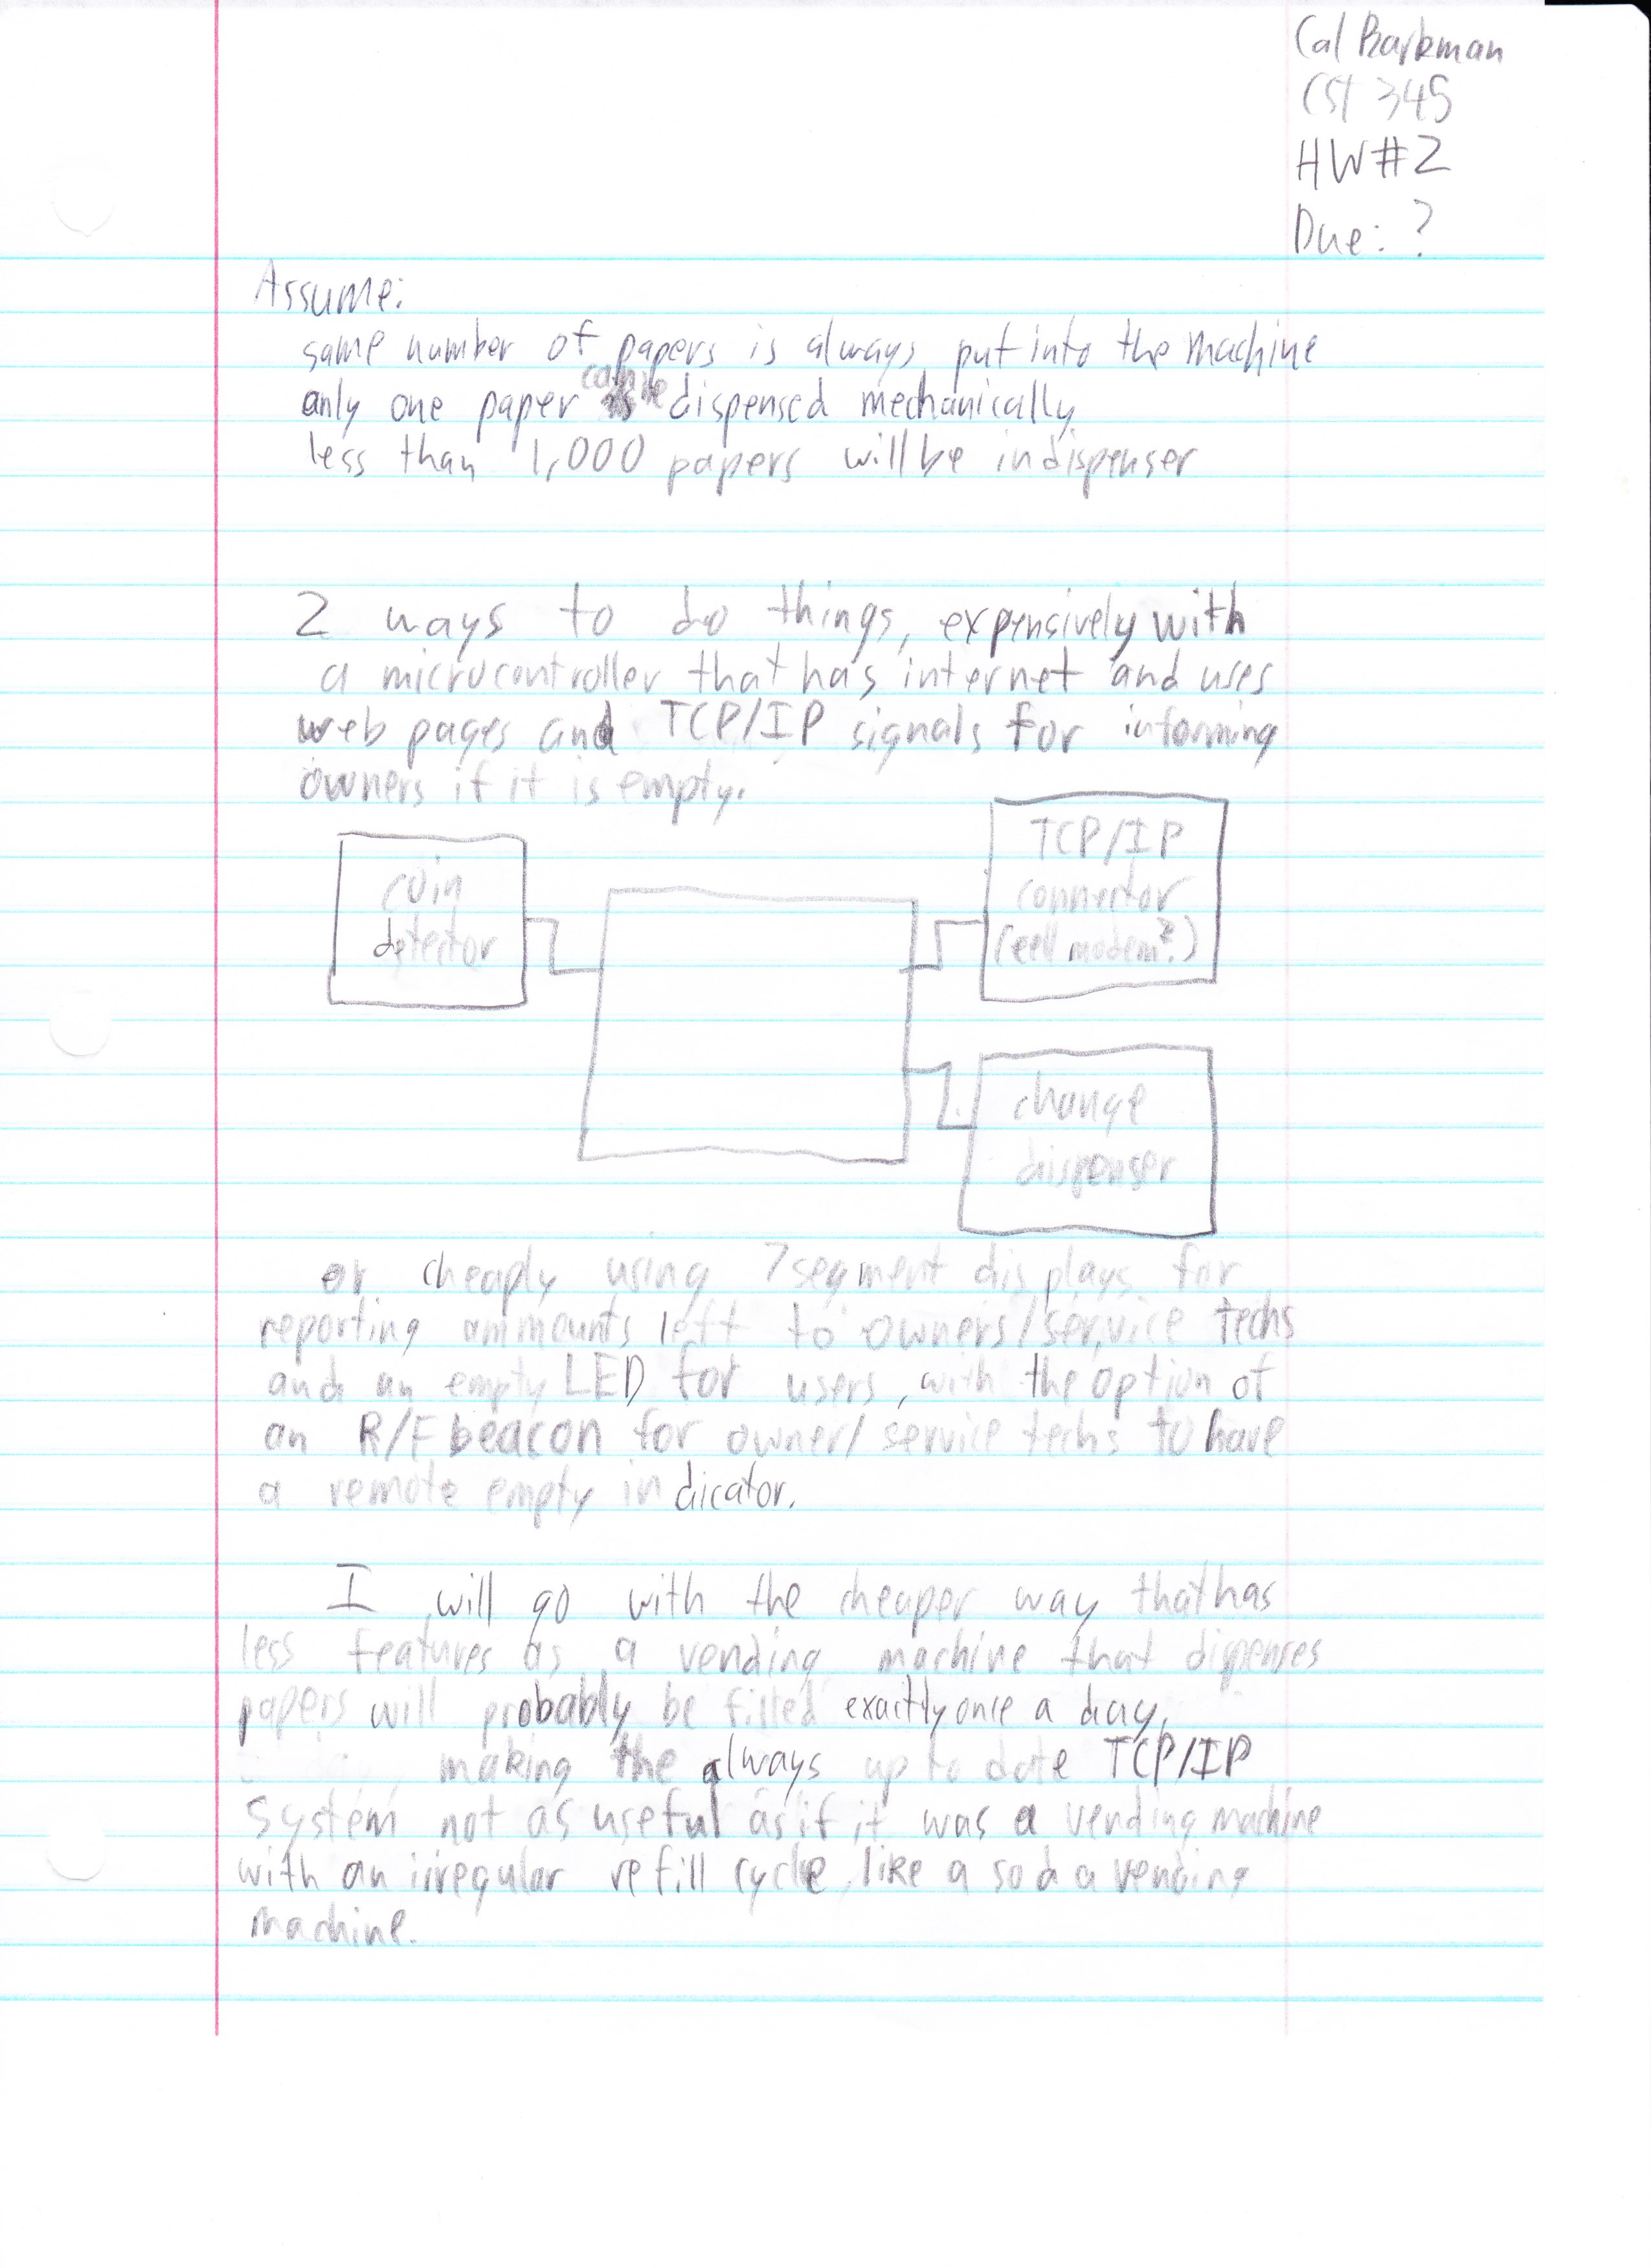 Cal Barkman
CST 345
HW#2
Due: ?
Assume:
same number of papers is always put into the machine
only one paper can be dispensed mechanically
less than 1,000 papers will be in dispenser
2 ways to do things, expensively with
a microcontroller that has internet and uses
web pages and TCP/IP signals for informing
owners if it is empty.
coin
detector
TCP/IP
connector
(cell modem?)
change
dispenser
or cheaply using 7segment displays for
reporting ammounts left to owners/service techs
and an empty LED for users, with the option of
an R/F beacon for owner/service techs to have
a remote empty indicator.
I will go with the cheaper way that has
less features as a vending machine that dispenses
papers will probably be filled exactly once a day,
making the always up to date TCP/IP
system not as useful as if it was a vending machine
with an irregular refill cycle, like a soda vending
machine.